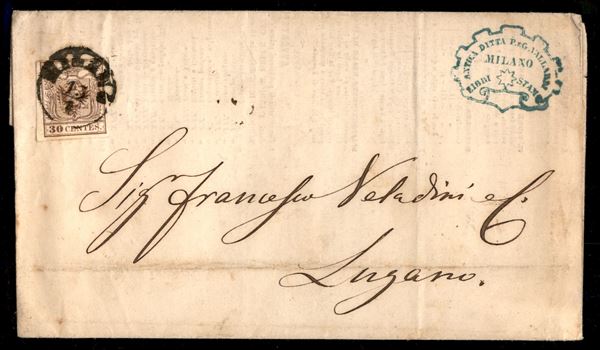 MILANO
30 CENTES.
ANTICA DITTA P. e G. VALLARDI
MILANO
LIBRI STAMPE
Sigr Francesco Veladini e C.
Lugano.